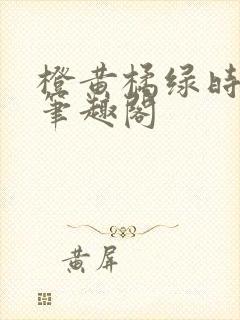 橙黄橘绿时
笔趣阁
黄屏